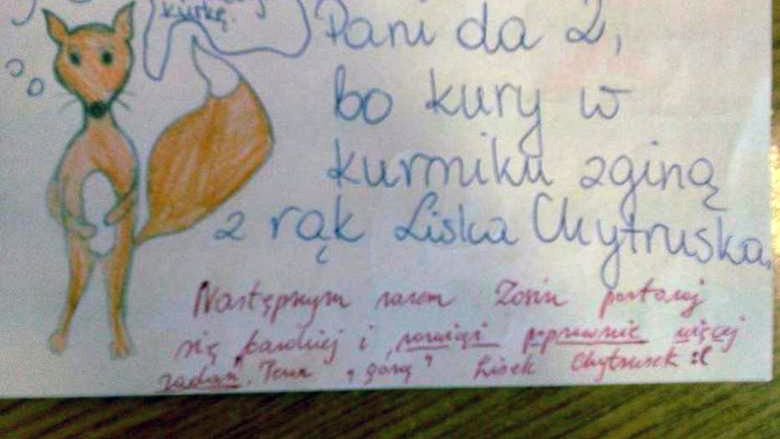 kurkę.
Pani da 2,
bo kury w
kurniku zginą
z rąk Liska Chytruska.
Następnym razem Zosiu postaraj
się bardziej i rozwiąż poprawnie więcej
zadań. Teraz "górą" Lisek Chytrusek :(